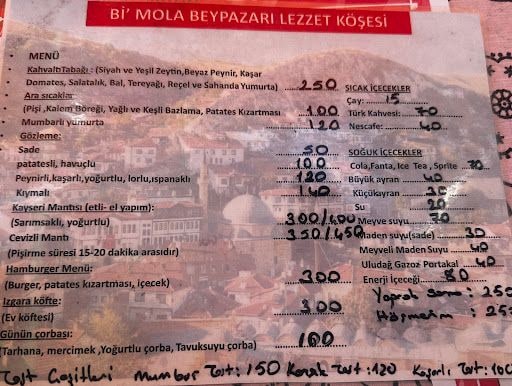 BI' MOLA BEYPAZARI LEZZET KÖŞESİ
MENÜ
KahvaltıTabağı : (Siyah ve Yeşil Zeytin,Beyaz Peynir, Kaşar
Domates, Salatalık, Bal, Tereyağı, Reçel ve Sahanda Yumurta) 250
Ara sıcaklar
(Pişi ,Kalem Böreği, Yağlı ve Keşli Bazlama, Patates Kızartması 100
Mumbarlı yumurta 120
Gözleme:
Sade
patatesli, havuçlu 100
Peynirli,kaşarlı,yoğurtlu, lorlu,ıspanaklı 120
Kıymalı 140
Kayseri Mantısı (etli- el yapım):
(Sarımsaklı, yoğurtlu) 300/400
Cevizli Mantı 350/450
(Pişirme süresi 15-20 dakika arasıdır)
Hamburger Menü:
(Burger, patates kızartması, içecek) 300
Izgara köfte:
(Ev köftesi) 300
Günün çorbası:
(Tarhana, mercimek ,Yoğurtlu çorba, Tavuksuyu çorba) 100
SICAK İÇECEKLER
Çay: 15
Türk Kahvesi: 70
Nescafe: 40
SOĞUK İÇECEKLER
Cola,Fanta, Ice Tea , Sprite 70
Büyük ayran 40
Küçükayran 30
Su 20
Meyve suyu 70
Maden suyu(sade) 30
Meyveli Maden Suyu 40
Uludağ Gazoz Portakal 40
Enerji İçeceği 80
Yaprak Sarma : 250
Höşmerim : 250
Tost Çeşitleri Mumbar Tost: 150 Karışık Tost : 120 Kaşarlı Tost: 100